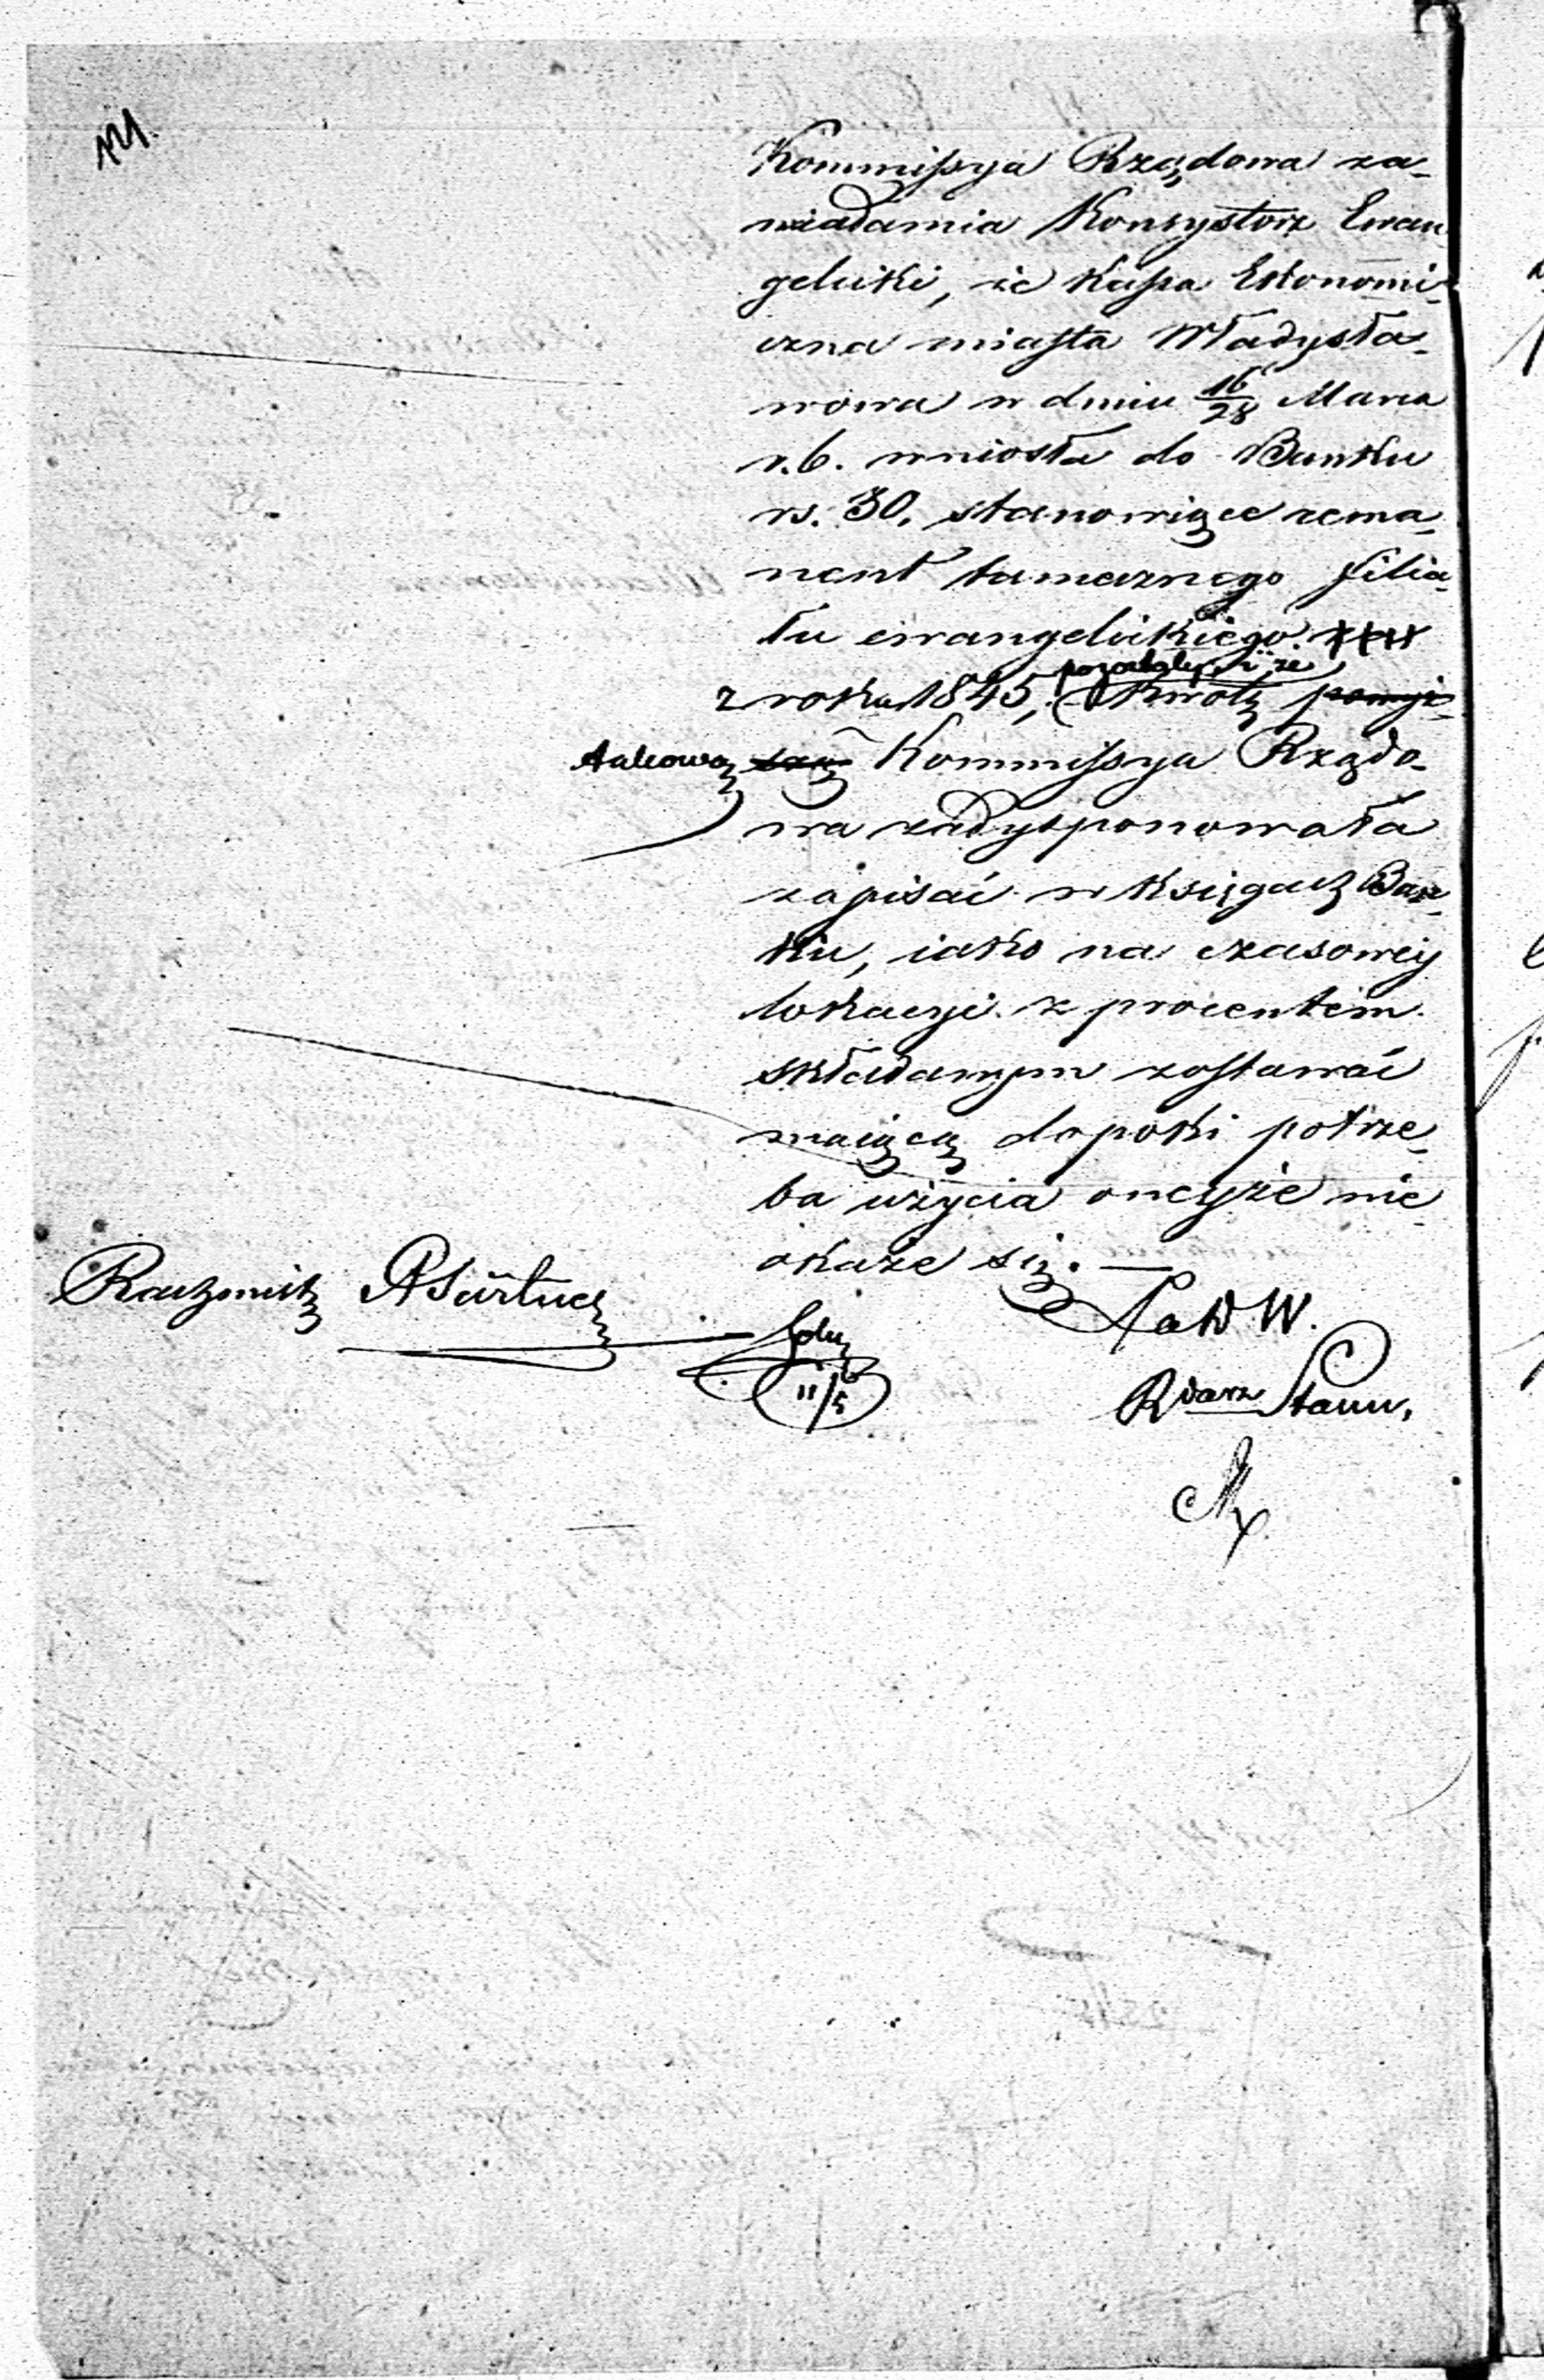 Kommissya Rządowa za-
wiadamia Konsystorz Ewan
gelicki, że Kassa Ekonomi-
czna miasta Władysła-
wowa w dniu 16/28 Marca
r. b. wniosła do Banku
rs. 30. stanowiące rema-
nent tamecznego filia-
łu ewangelickiego
z roku 1845, pozostały, i że kwotę powyż-
takową szą Kommissya Rządo-
wa zadysponowała
zapisać w księgach Ban-
ku, iako na czasowey
lokacyi z procentem
składanym zostawać
maiącą dopóki potrze-
ba użycia oneyże nie
okaże się. —
Rachmistrz
11/5